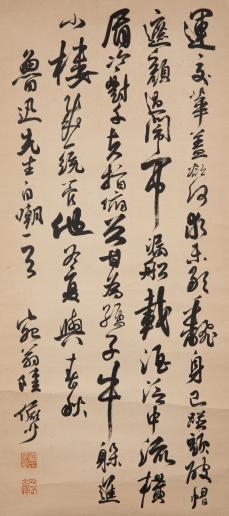 運交華蓋欲何求未敢翻身已碰頭破帽
遮顏過鬧市漏船載酒泛中流橫
眉冷對千夫指俯首甘為孺子牛躲進
小樓成一統管他冬夏與春秋
魯迅先生自嘲
宛翁陸儼少